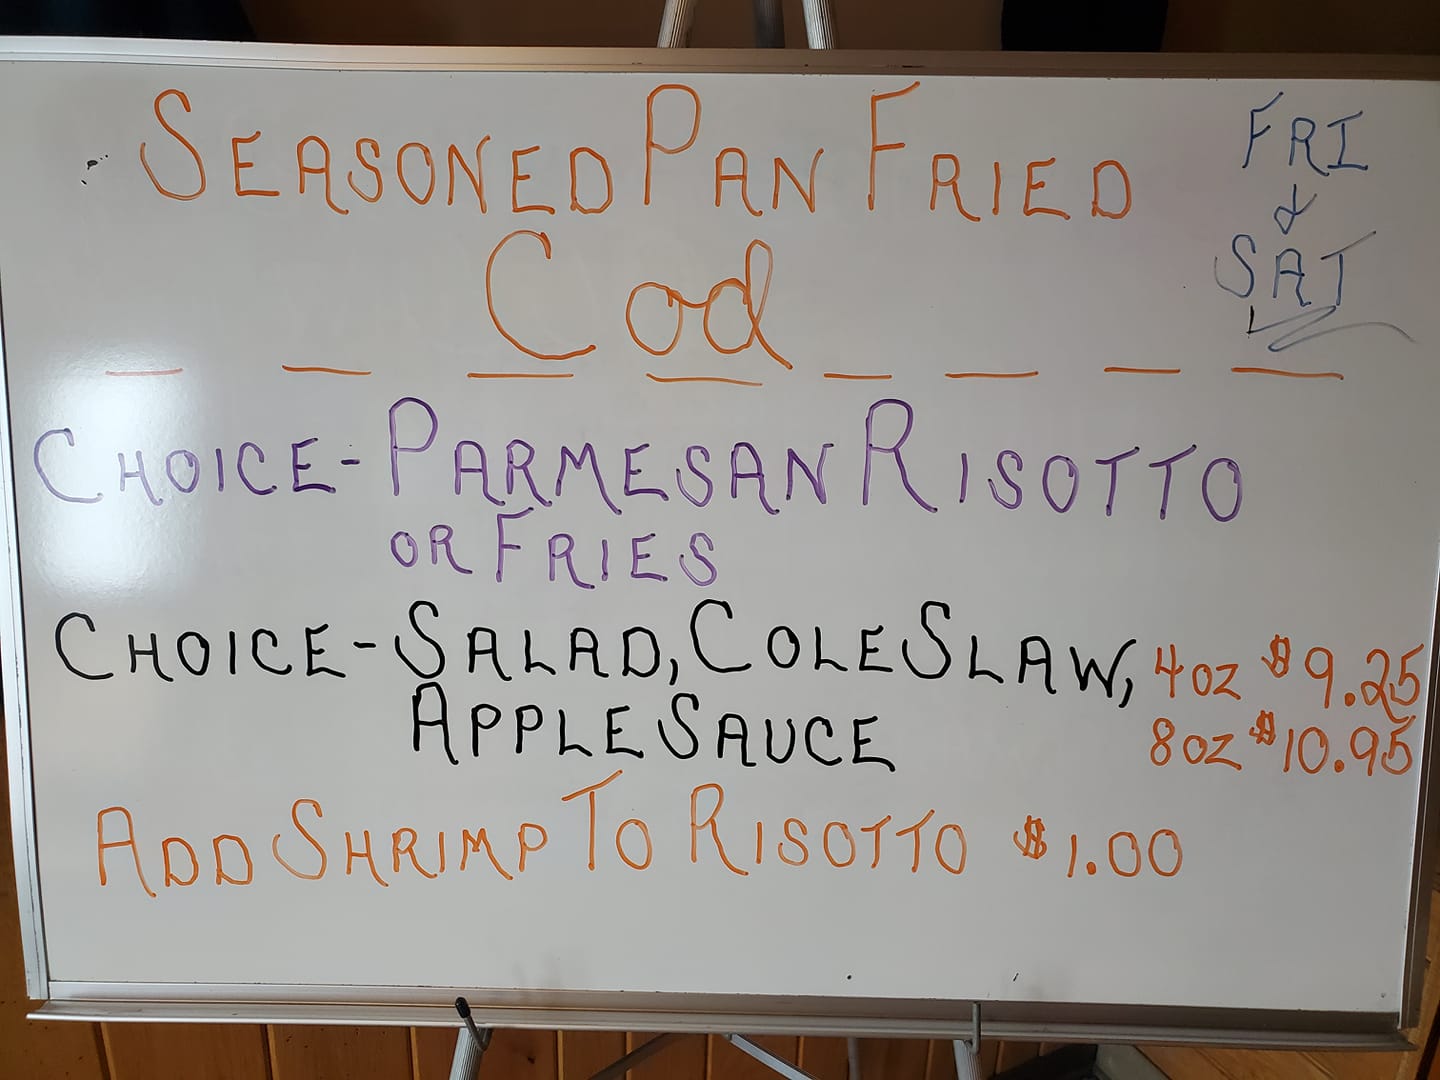 SEASONED PAN FRIED
Cod
FRI
&
SAT
CHOICE-PARMESAN RISOTTO
OR FRIES
CHOICE-SALAD, COLE SLAW,
APPLE SAUCE
4oz $9.25
8oz $10.95
ADD SHRIMP TO RISOTTO $1.00